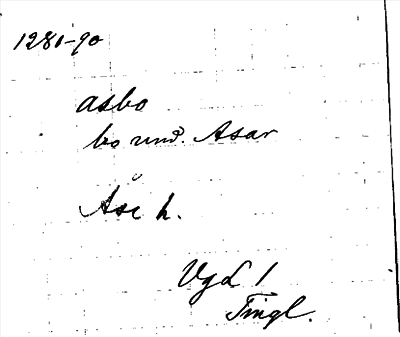 1281-90
asbo
bo und. Asar
Ase h.
VgL 1
Tingl.